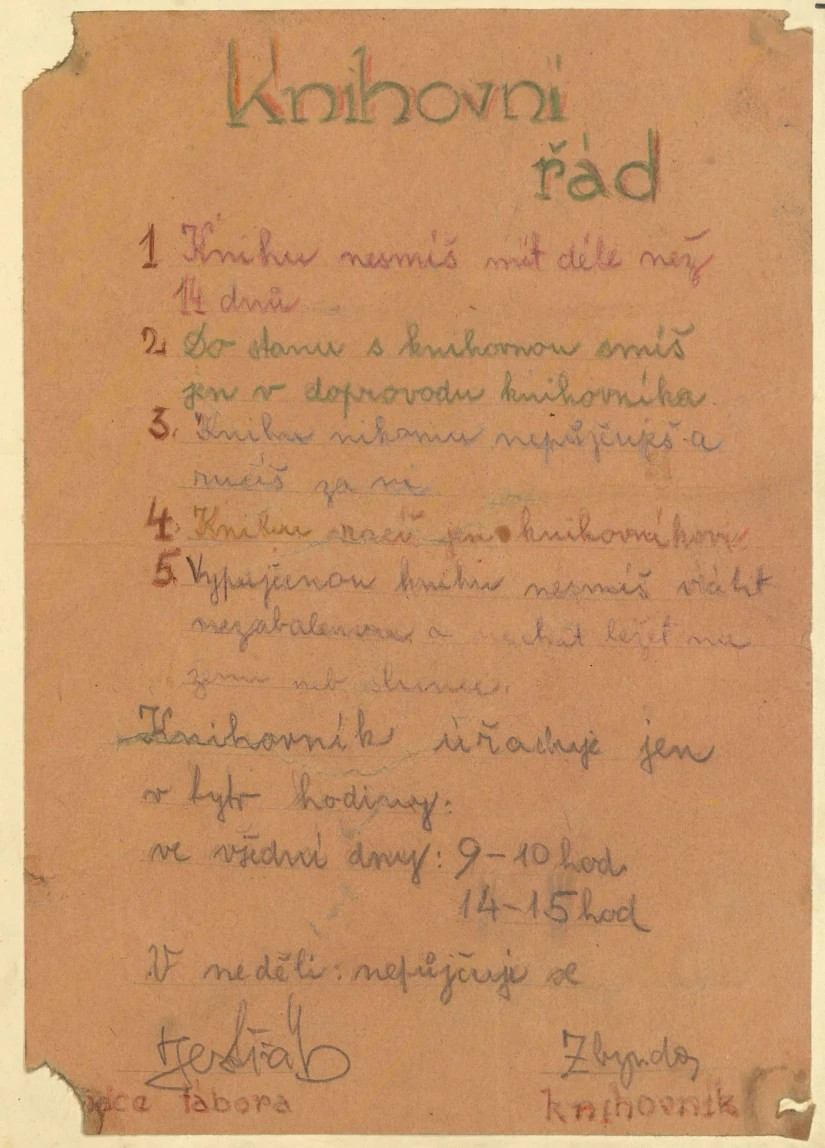 Knihovní
řád
1 Knihu nesmíš mít déle než
14 dnů
2 Do stanu s knihovnou smíš
jen v doprovodu knihovníka.
3. Knihu nikomu nepůjčuješ a
ručíš za ni
4. Knihu vrací jen knihovníkovi
5. Vypůjčenou knihu nesmíš vrátit
nezabalenou a nechat ležet na
zemi neb slunce.
Knihovník úřaduje jen
v tyto hodiny:
ve všední dny: 9-10 hod.
14-15 hod
V neděli: nepůjčuje se
Jestřáb Zbynda
tábora knihovník